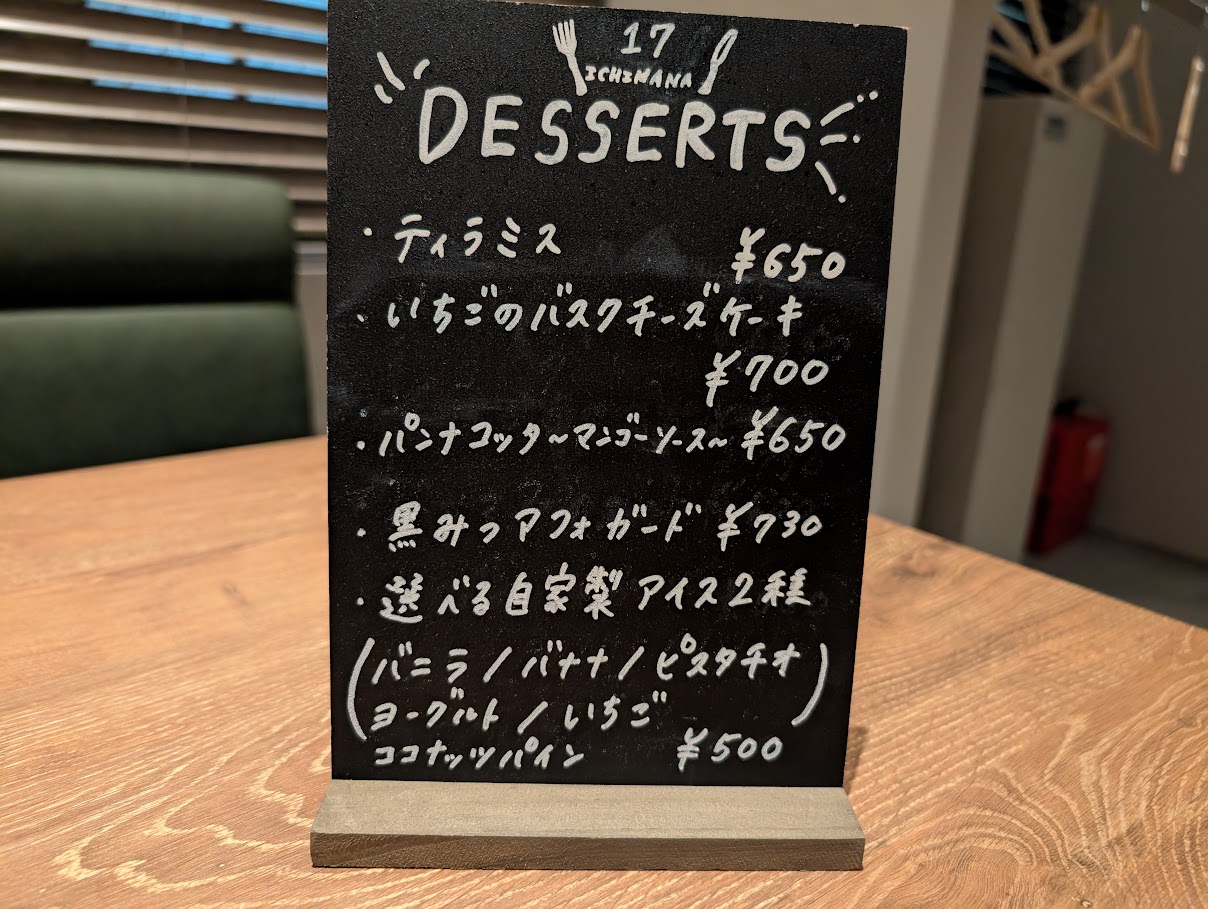 17
ICHINANA
DESSERTS
・ティラミス ¥650
・いちごのバスクチーズケーキ
¥700
・パンナコッタ〜マンゴーソース〜 ¥650
・黒みつアフォガード ¥730
・選べる自家製アイス2種
(バニラ/バナナ/ピスタチオ
ヨーグルト/いちご)
ココナッツパイン ¥500